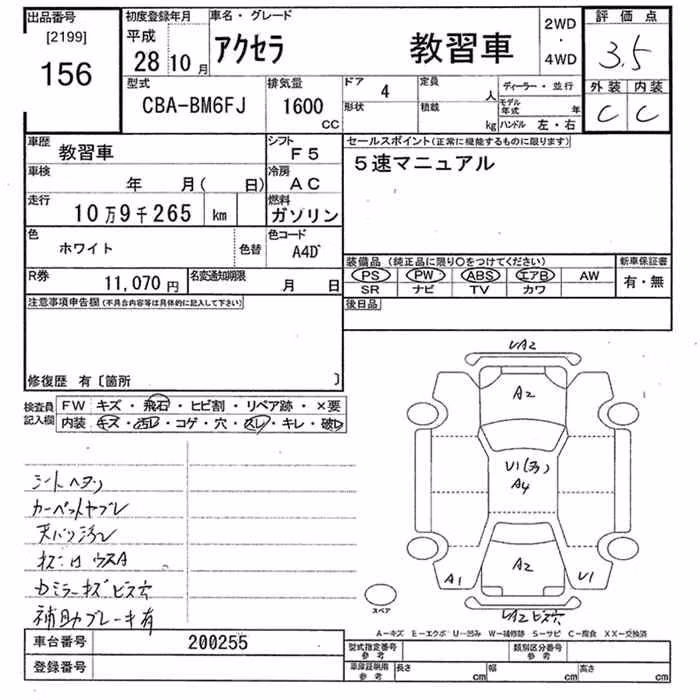 出品番号
[2199]
156
初度登録年月
平成
28 10 月
車名・グレード
アクセラ 教習車
2WD
・
4WD
評価点
3.5
外装 内装
C C
型式
CBA-BM6FJ
排気量
1600
CC
ドア 4
形状
定員 人
積載 kg
ディーラー・並行
モデル年式 年
ハンドル 左・右
車歴
教習車
シフト
F5
車検
年 月( 日)
冷房
AC
走行
10万9千265 km
燃料
ガソリン
色
ホワイト
色替
色コード
A4D
R券
11,070 円
名変通知期限
月 日
セールスポイント(正常に機能するものに限ります)
5速マニュアル
装備品 (純正品に限り○をつけてください)
PS PW ABS エアB AW
SR ナビ TV カワ
新車保証書
有・無
後日品
注意事項申告欄(不具合内容等は具体的に記入して下さい)
修復歴 有〔箇所 〕
検査員
記入欄
FW キズ・飛石・ヒビ割・リペア跡・×要
内装 キズ・汚レ・コゲ・穴・スレ・キレ・破レ
シートヘタリ
カーペットヤブレ
天バリ汚レ
ウスA
キズ ビス穴
補助ブレーキ有
UA2
A2
U1(多)
A4
A2
A1
U1
UA2 ビス穴
スペア
A-キズ E-エクボ U-凹み W-補修跡 S-サビ C-腐食 XX-交換済
車台番号 200255
登録番号
型式指定番号
参考
類別区分番号
参考
車庫証明用
参考
長さ cm 幅 cm 高さ cm